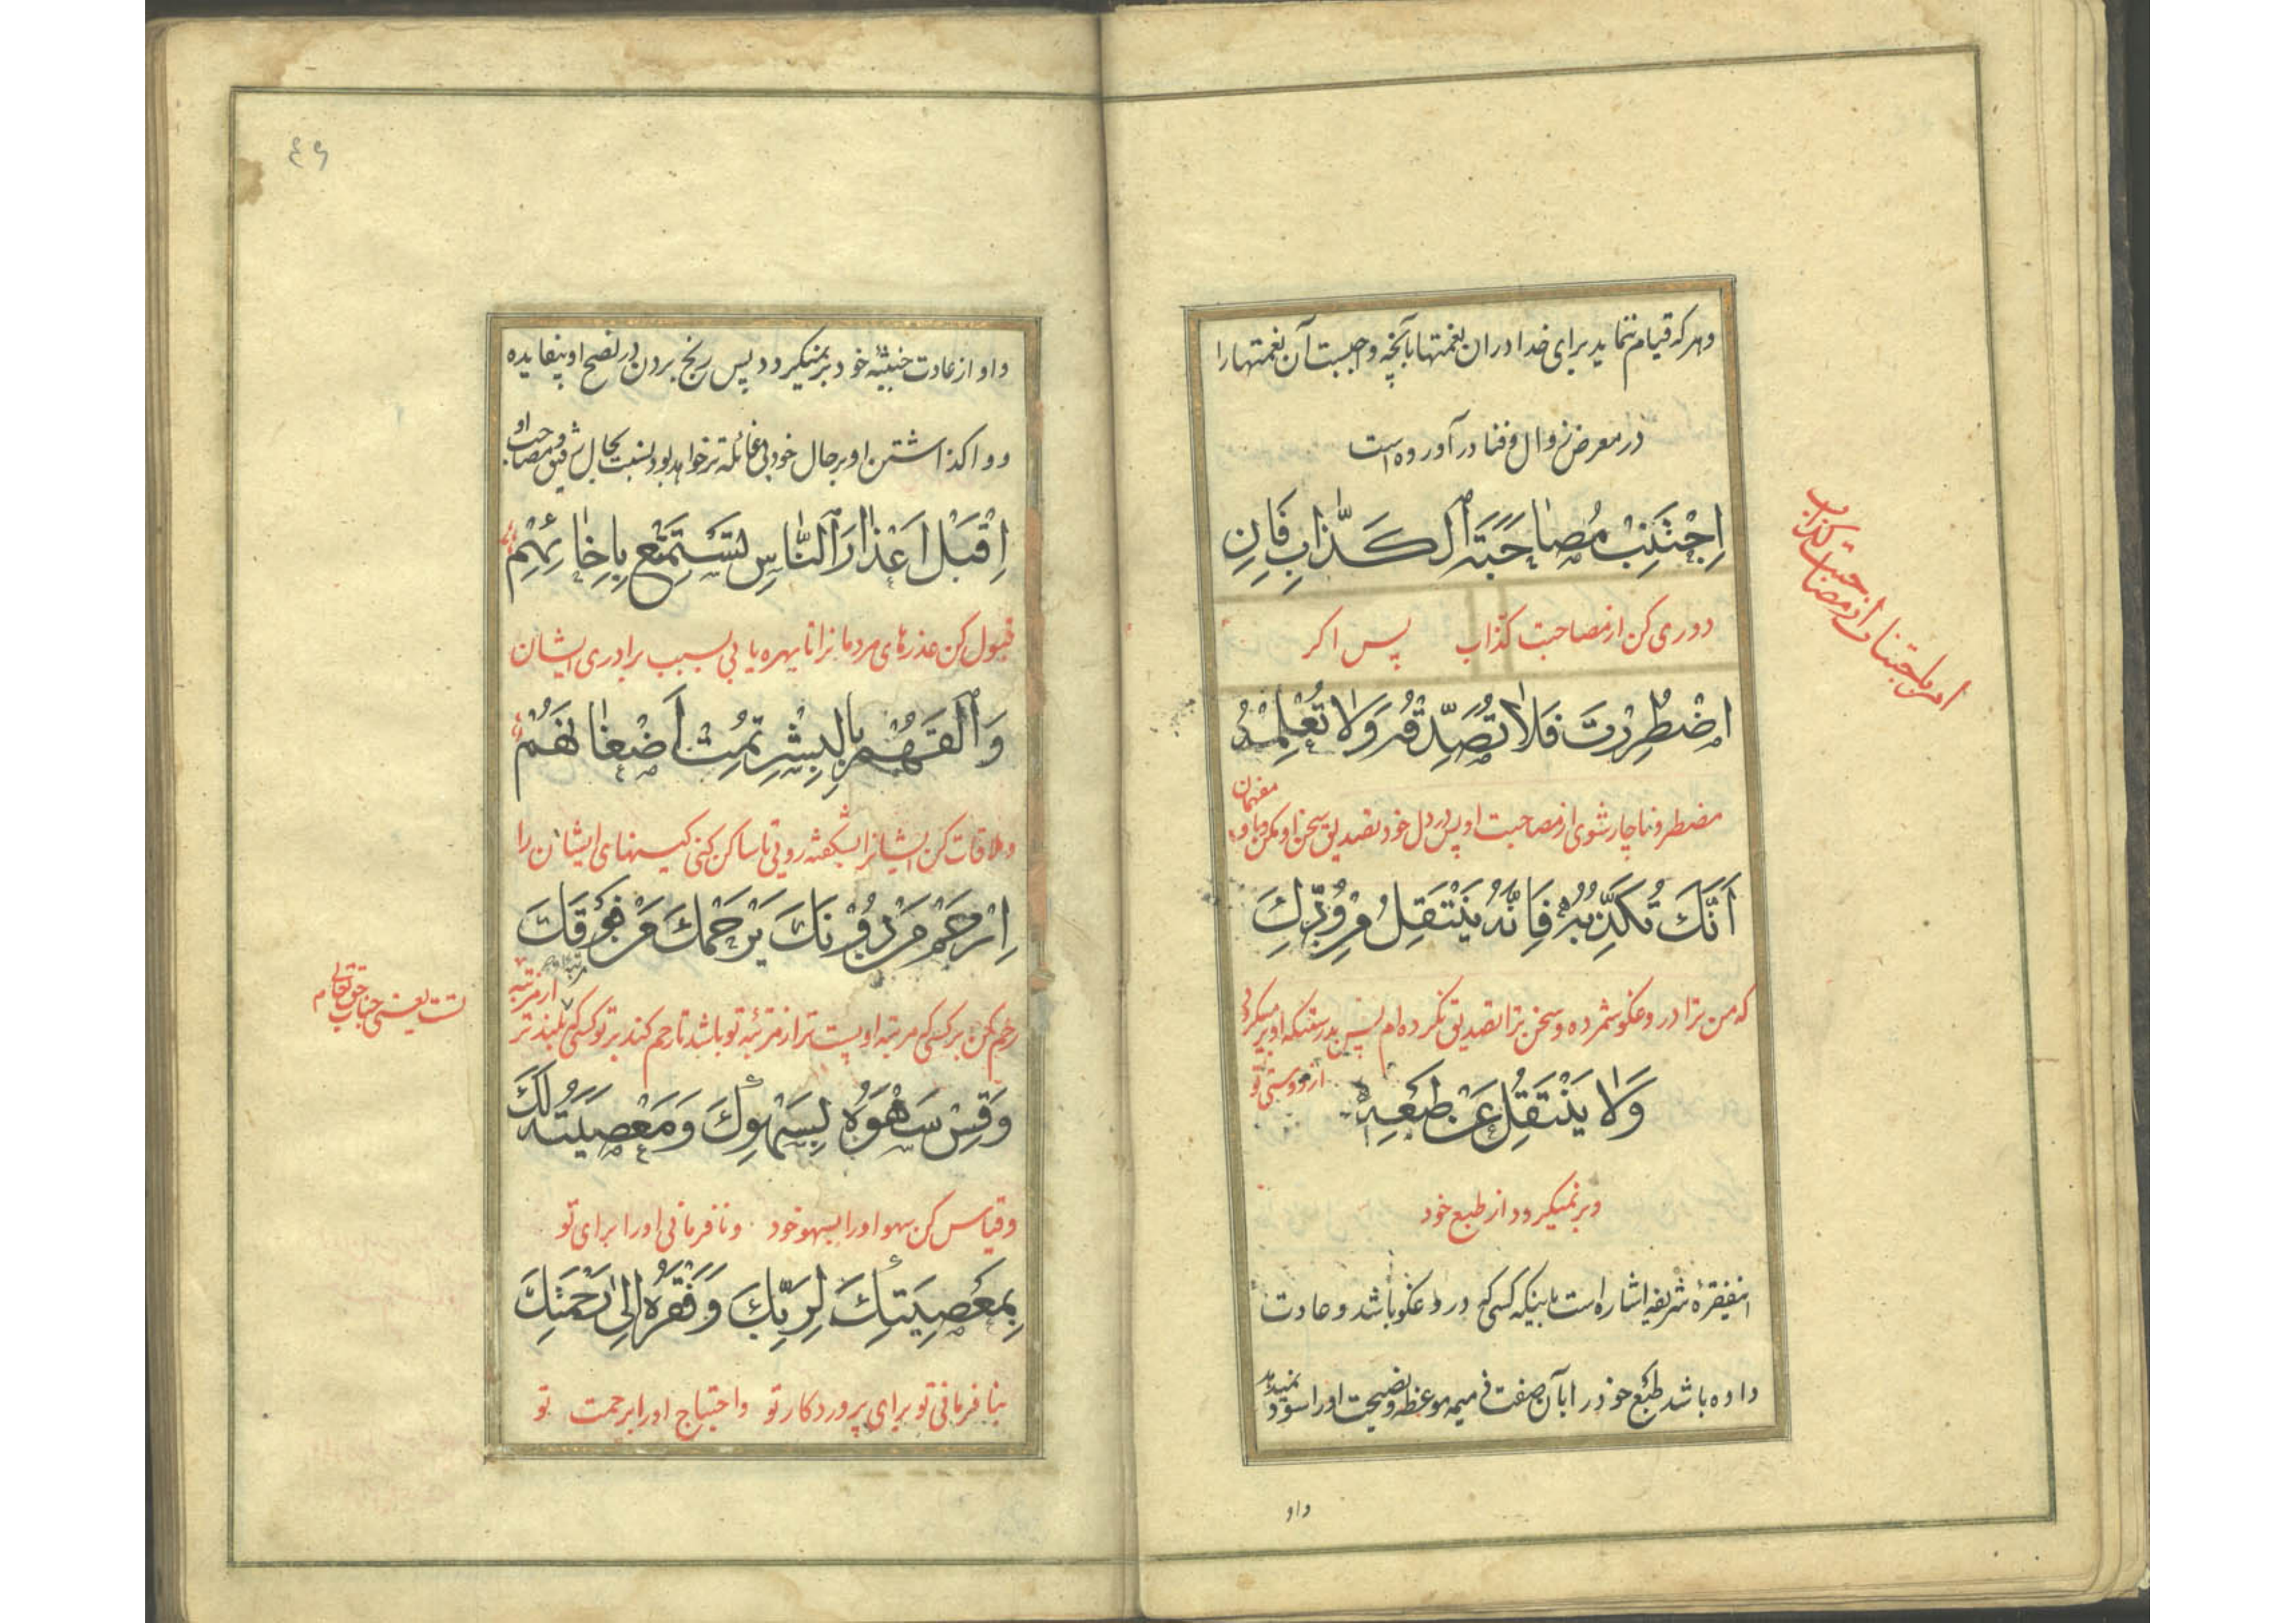 وهر که قیام ننماید برای خدا دران نعمتها بآنچه واجبست آن نعمتها را
در معرض زوال و فنا در آورده است
اِجْتَنِبْ مُصٰاحَبَةَ الْكَذّٰابِ فَاِنِ
دوری کن از مصاحبت کذاب پس اکر
امر باجتناب از مصاحبت کذاب
اضْطُرِرْتَ فَلاٰ تُصَدِّقْهُ وَلاٰ تُعْلِمْهُ
مضطر و ناچار شوی از مصاحبت او پس در دل خود تصدیق سخن او مکن و باو مفهمان
اَنَّكَ تُكَذِّبُهُ فَاِنَّهُ يَنْتَقِلُ عَنْ وُدِّكَ
که من ترا دروغکو شمرده و سخن ترا تصدیق نکرده ام پس بدرستیکه او بر میکردد
از دوستی تو
وَلاٰ يَنْتَقِلُ عَنْ طَبْعِهِ
و بر نمیکردد از طبع خود
اینفقرهٔ شریفه اشاره است باینکه کسی که دروغکو باشد و عادت
داده باشد طبع خود را بآن صفت ذمیمه موعظه و نصیحت او را سود نمیدهد
و او
٤٦
و او از عادت خبیثهٔ خود بر نمیکردد پس رنج بردن در نصح او بیفایده
و واکذاشتن او بر حال خود بی غائله تر خواهد بود نسبت بحال رفیق و مصاحب او
اِقْبَلْ اَعْذٰارَ النّٰاسِ تَسْتَمْتِعْ بِاِخٰائِهِمْ
قبول کن عذرهای مردمانرا تا بهره یابی بسبب برادری ایشان
وَالْقَهُمْ بِالْبِشْرِ تُمِتْ اَضْغٰانَهُمْ
و ملاقات کن ایشانرا بشکفته روئی تا ساکن کنی کینهای ایشان را
اِرْحَمْ مَنْ دُوْنَكَ يَرْحَمْكَ مَنْ فَوْقَكَ
رحم کن بر کسی که مرتبهٔ او پست تر از مرتبهٔ تو باشد تا رحم کند بر تو کسی که بلند تر
از مرتبه
تست یعنی جناب حق تعالی
وَقِسْ سَهْوَهُ بِسَهْوِكَ وَمَعْصِيَتَهُ لَكَ
و قیاس کن سهو او را بسهو خود و نافرمانی او را برای تو
بِمَعْصِيَتِكَ لِرَبِّكَ وَفَقْرَهُ اِلىٰ رَحْمَتِكَ
بنافرمانی تو برای پروردکار تو و احتیاج او را برحمت تو